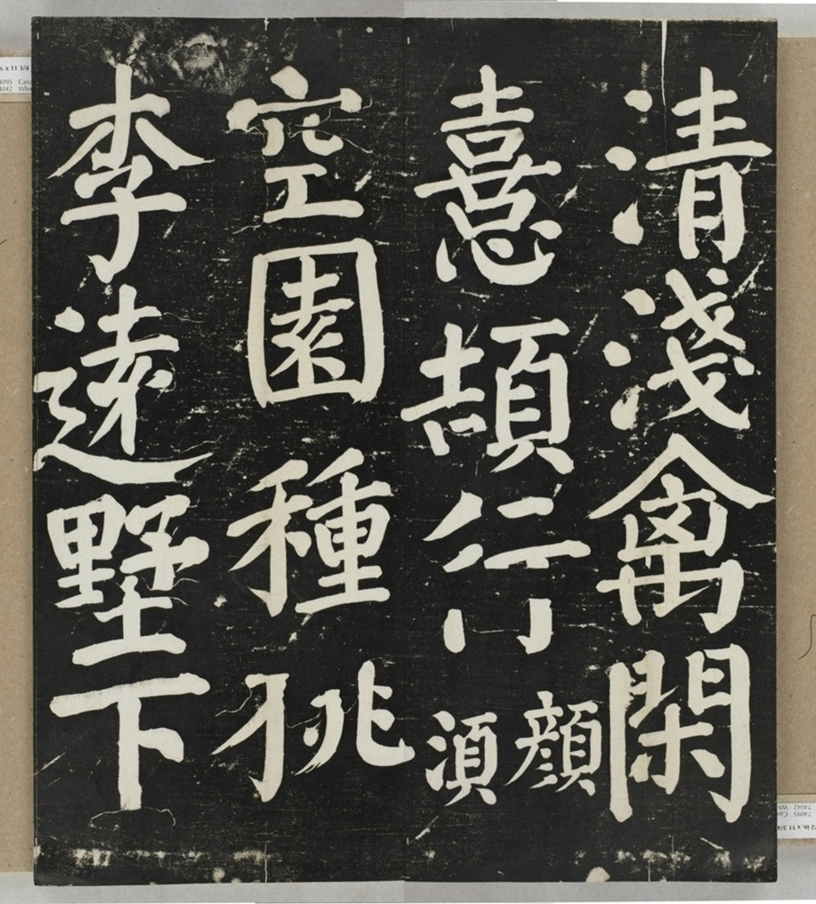 清淺禽閑
憙頡行顏湏
空園種桃
李遠墅下